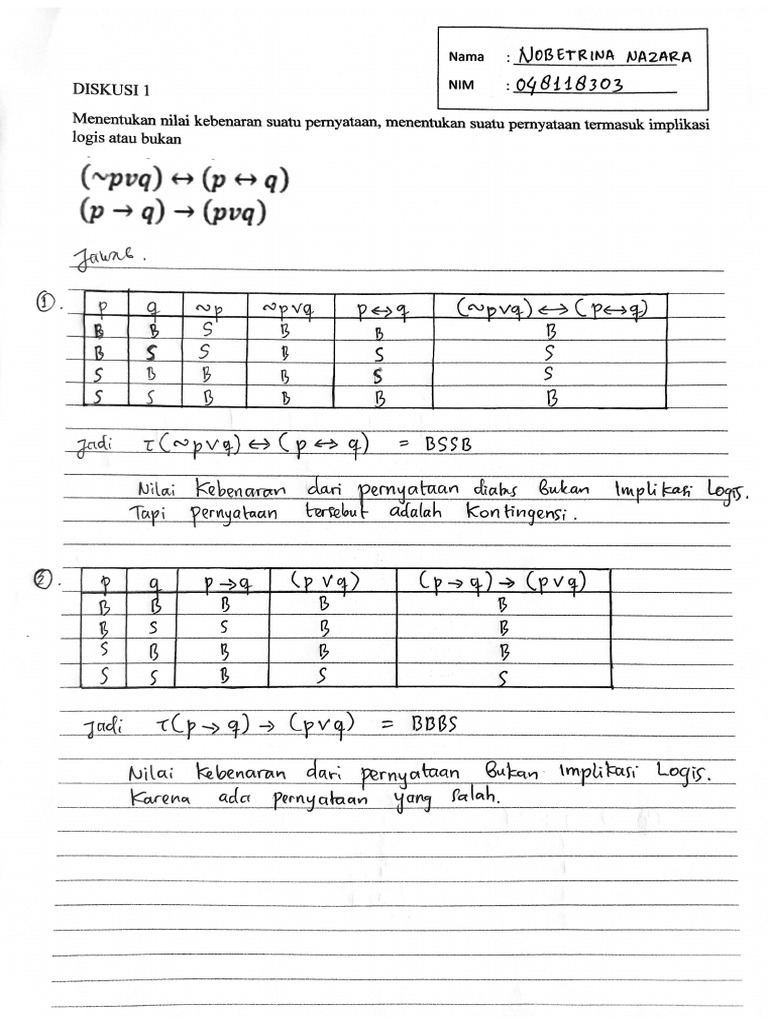 Nama : NOBETRINA NAZARA
NIM : 048118303
DISKUSI 1
Menentukan nilai kebenaran suatu pernyataan, menentukan suatu pernyataan termasuk implikasi
logis atau bukan
(~pvq) ↔ (p ↔ q)
(p → q) → (pvq)
Jawab.
①. p q ~p ~p∨q p↔q (~p∨q) ↔ (p↔q)
B B S B B B
B S S B S S
S B B B S S
S S B B B B
Jadi τ(~p∨q) ↔ (p ↔ q) = BSSB
Nilai Kebenaran dari pernyataan diatas Bukan Implikasi Logis.
Tapi pernyataan tersebut adalah Kontingensi.
②. p q p→q (p∨q) (p→q) → (p∨q)
B B B B B
B S S B B
S B B B B
S S B S S
Jadi τ(p→q) → (p∨q) = BBBS
Nilai Kebenaran dari pernyataan Bukan Implikasi Logis.
Karena ada pernyataan yang Salah.